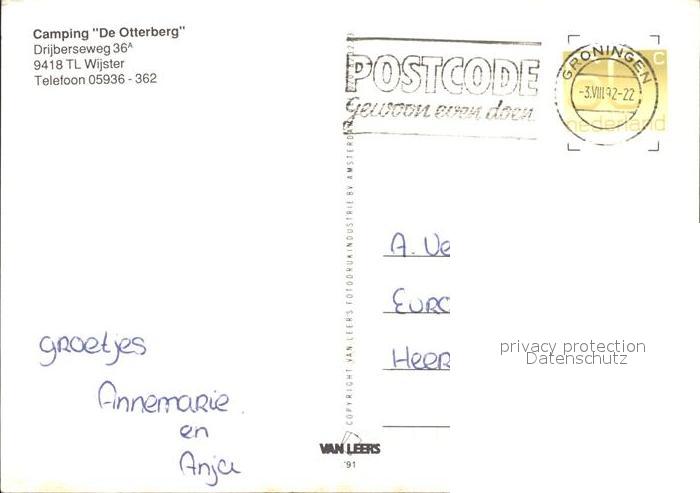 Camping "De Otterberg"
Drijberseweg 36ᴬ
9418 TL Wijster
Telefoon 05936 - 362
POSTCODE
gewoon even doen
GRONINGEN
-3.VIII.92-22
c
nederland
COPYRIGHT VAN LEER'S FOTODRUKINDUSTRIE BV AMSTERDAM
A. Ve
Euro
Heer
privacy protection
Datenschutz
groetjes
Annemarie
en
Anja
VAN LEERS
'91